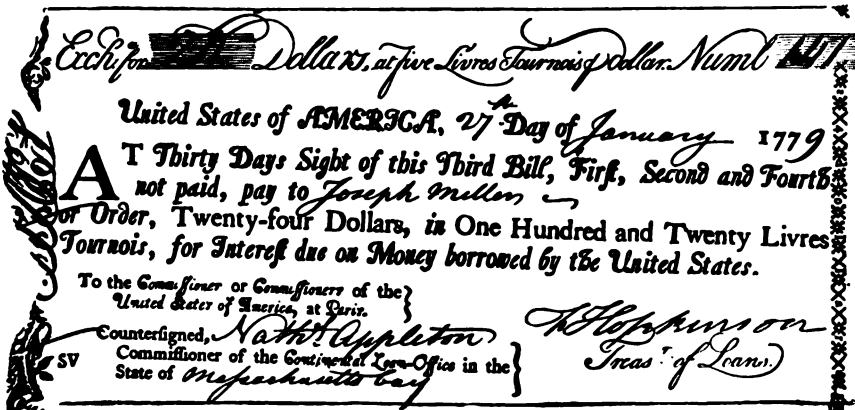 Exchᵉ for Dollars, at five Livres Tournois ꝑ Dollar. Numb
United States of AMERICA, 27th Day of January 1779
AT Thirty Days Sight of this Third Bill, First, Second and Fourth
not paid, pay to Joseph Millen
or Order, Twenty-four Dollars, in One Hundred and Twenty Livres
Tournois, for Interest due on Money borrowed by the United States.
To the Commissioner or Commissioners of the
United States of America, at Paris.
Countersigned, Nathl. Appleton
Commissioner of the Continental Loan-Office in the
State of Massachusetts bay
SV
F Hopkinson
Treasr. of Loans.